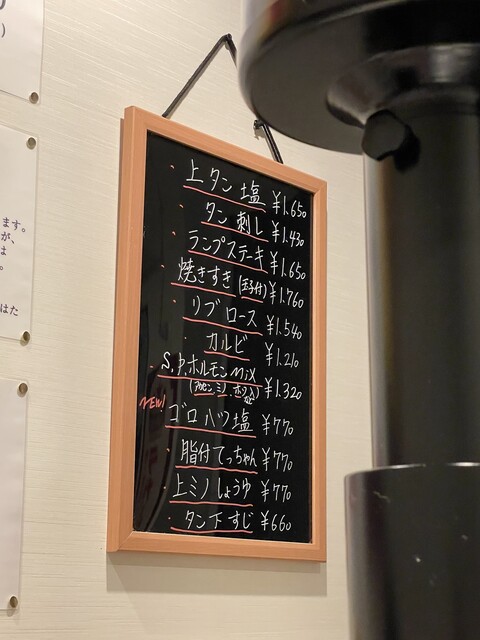 ます。
が、
は
。
はた
・上タン塩 ¥1.650
・タン刺し ¥1.430
・ランプステーキ ¥1.650
・焼きすき(玉子付) ¥1.760
・リブロース ¥1.540
・カルビ ¥1.210
・S.P.ホルモンMiX ¥1.320
NEW! ゴロハツ塩 ¥770
・脂付てっちゃん ¥770
・上ミノしょうゆ ¥770
・タン下すじ ¥660